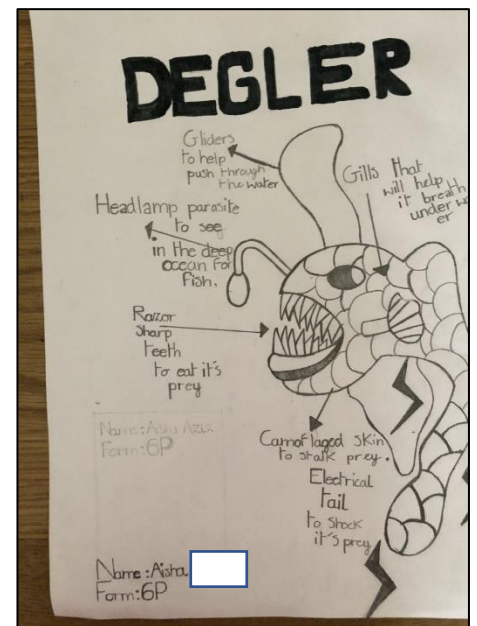 DEGLER
Gliders
to help
push through
the water
Gills that
will help
it breath
under w
er
Headlamp parasite
to see
in the deep
ocean for
fish.
Razor
sharp
teeth
to eat it's
prey
Camoflaged skin
to stalk prey.
Electrical
tail
to shock
it's prey
Name: Aisha
Form: 6P
Name: Aisha
Form: 6P